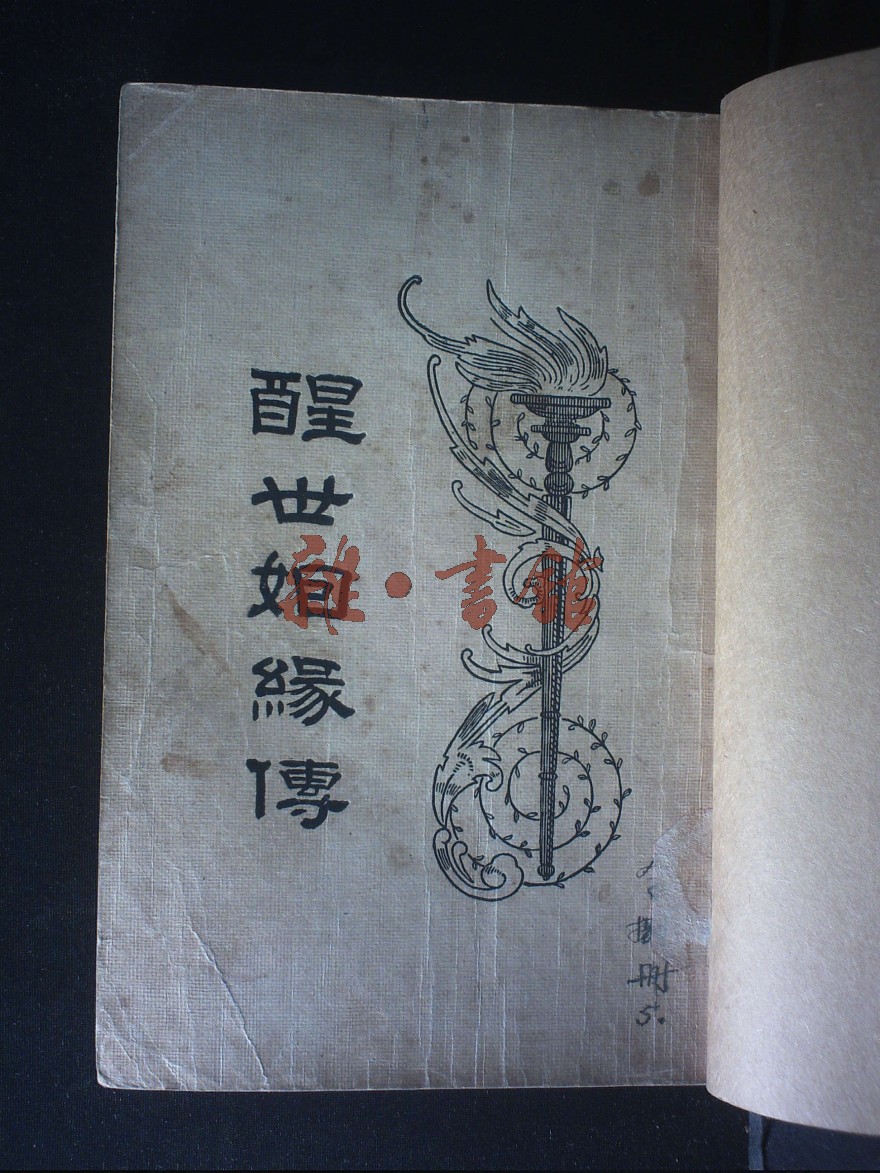 醒世姻緣傳
雜·書館
冊
5.